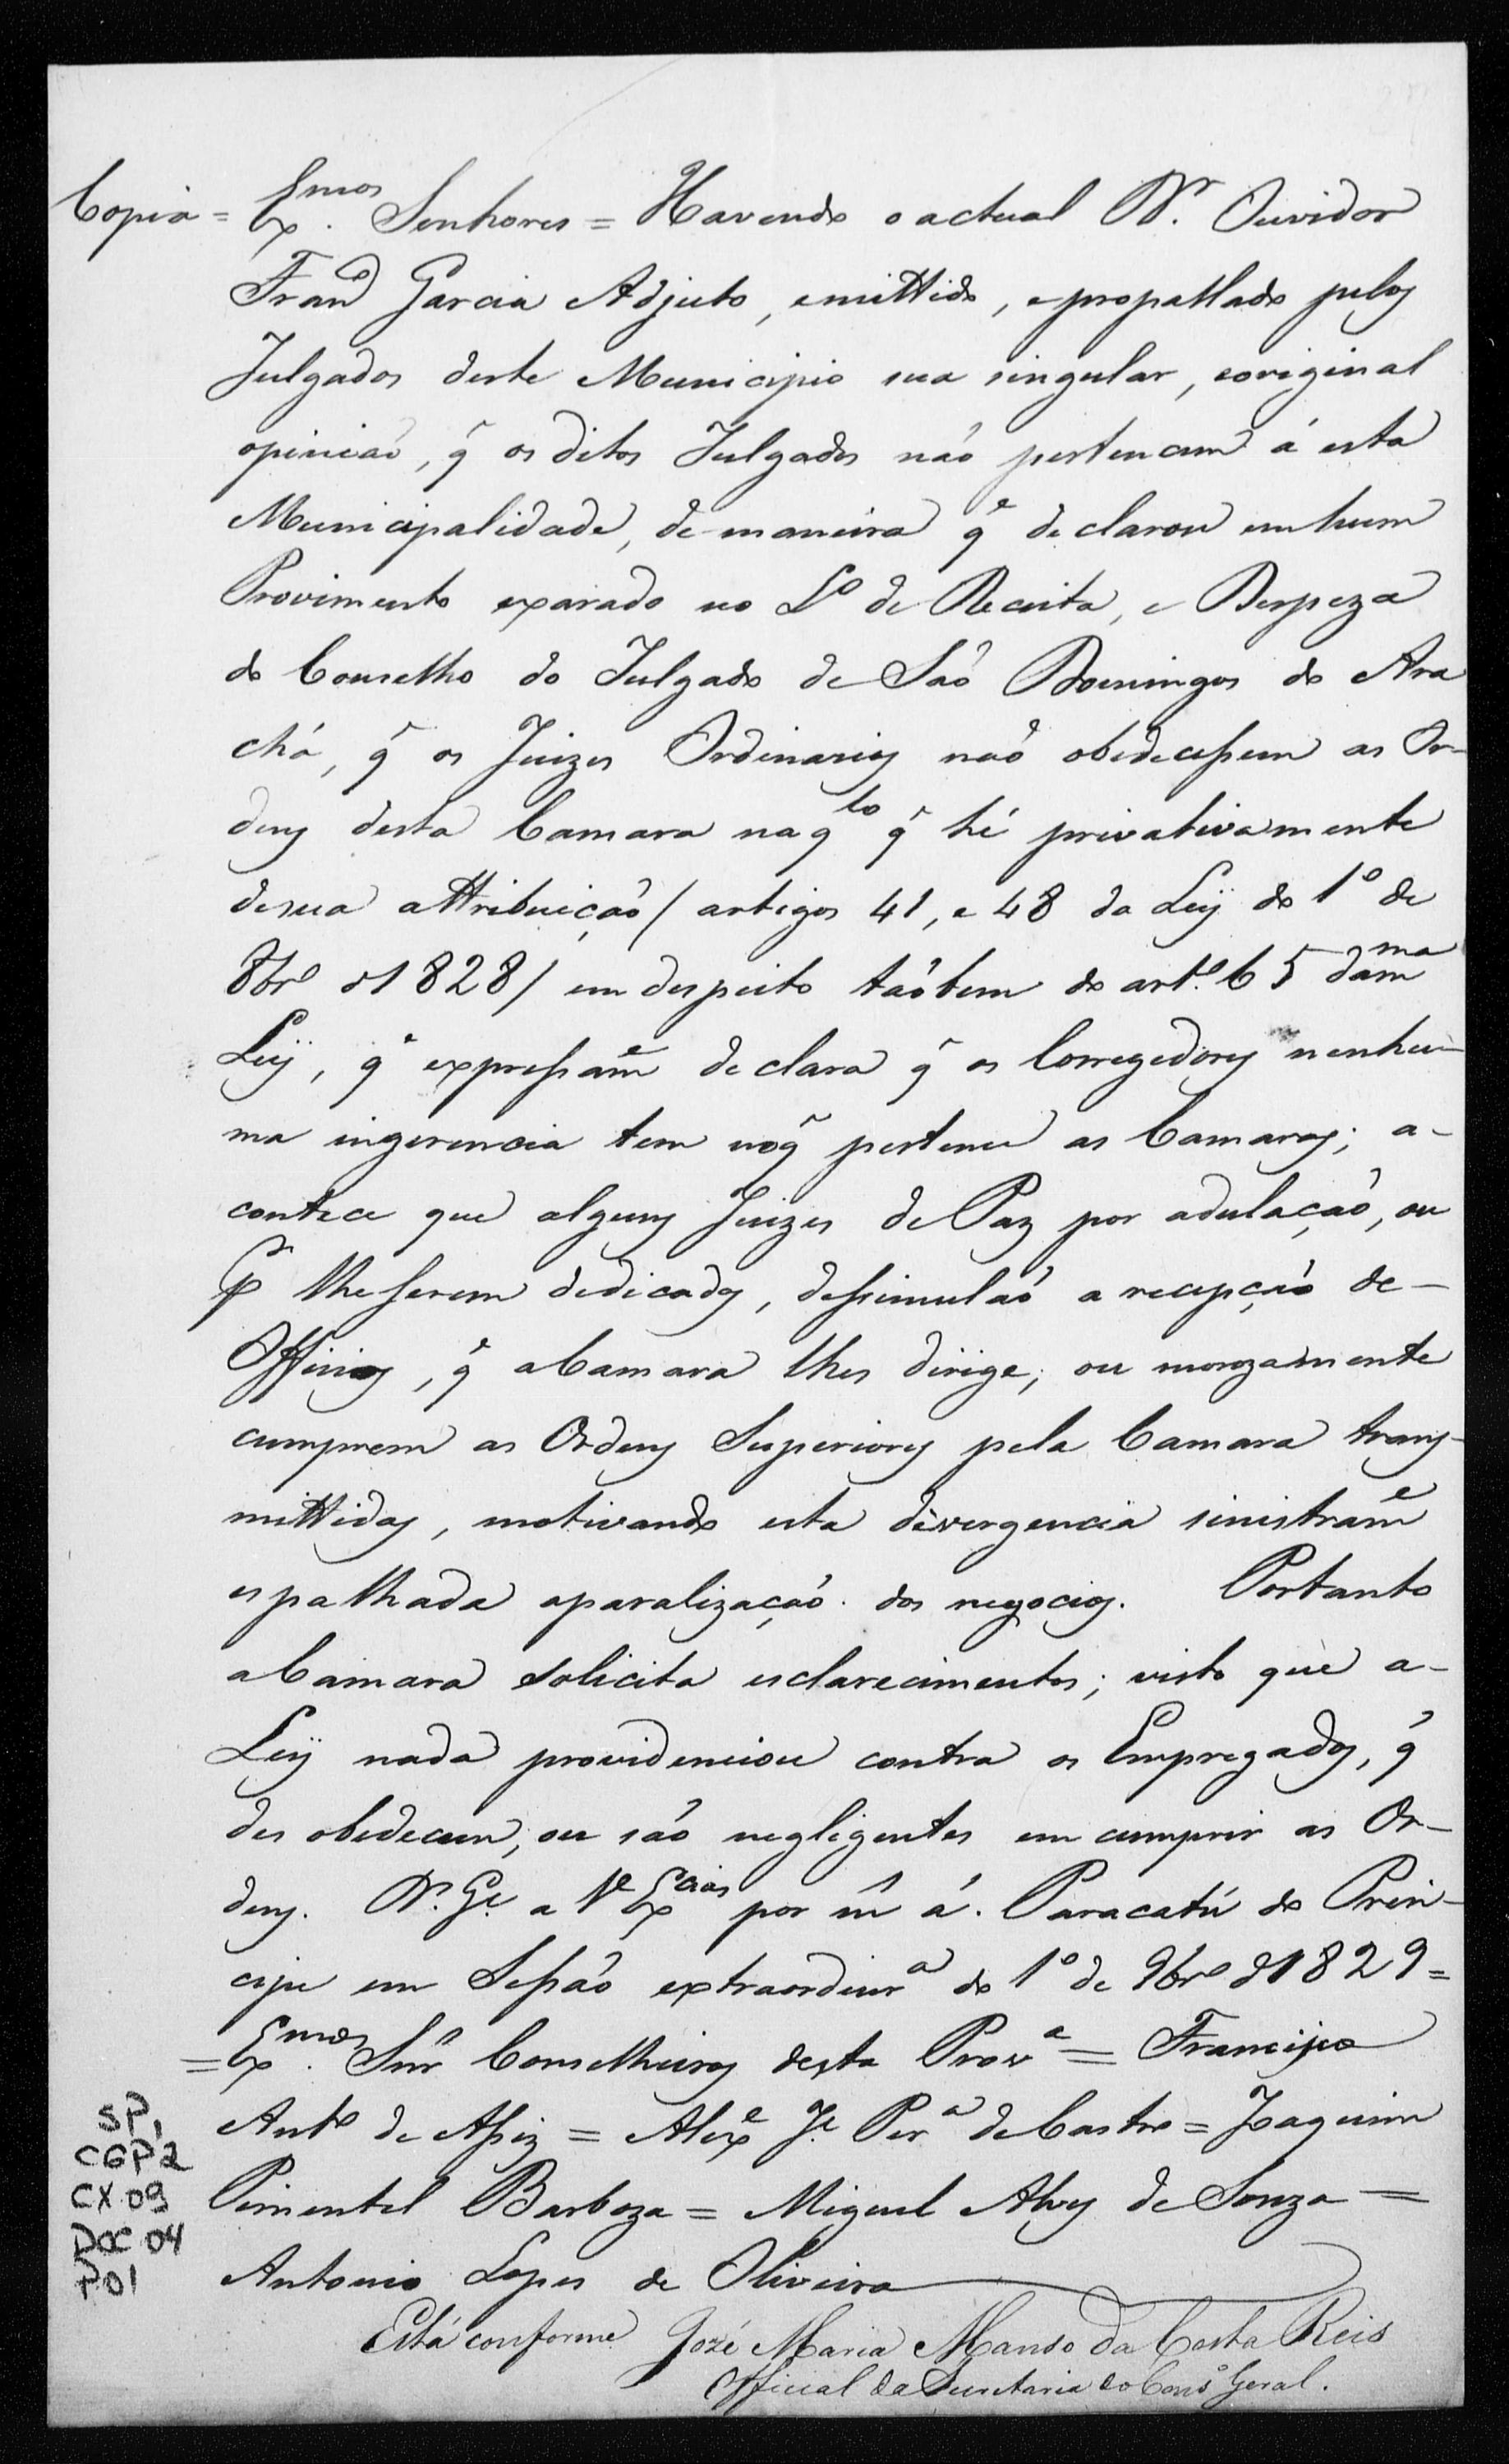 Copia = Exmos. Senhores = Havendo o actual Dr. Ouvidor
Franco Garcia Adjuto, emittido, e propallado pelos
Julgados deste Municipio sua singular, e original
opinião, q̃ os ditos Julgados não pertencem á esta
Municipalidade, de maneira q̃ declarou em hum
Provimento exarado no Lo de Receita, e Despeza
do Conselho do Julgado de São Domingos do Ara
chá, q̃ os Juizes Ordinarios não obedecessem as Or-
dens desta Camara naqto q̃ hé privativamente
de sua attribuição / artigos 41, e 48 da Leÿ do 1º de
8bro d1828 / em despeito tãobem do arto. 65 damma
Leÿ, q̃ expressame declara q̃ os Corregedores nenhu-
ma ingerencia tem noq̃ pertence as Camaras; a-
contece que alguns Juizes de Paz por adulação, ou
pr lhe serem dedicados, dessimulão a recepção de-
Officios, q̃ a Camara lhes dirige; ou morozamente
cumprem as Ordens Superiores pela Camara trans-
mittidas, motivando esta divergencia sinistrame
espalhada a paralização dos negocios. Portanto
a Camara solicita esclarecimentos; visto que a-
Leÿ nada providenciou contra os Empregados, q̃
des obedecem, ou são negligentes em cumprir as Or-
dens. Ds. Ge. a Ve Excias por m a. Paracatú do Prin-
cipe em Sessão extraordinra do 1º de 9bro d1829 =
= Exmos. Snr Conselheiros desta Prova = Francisco
Anto de Assiz = Alexe Je Pera de Castro = Joaquim
Pimentel Barboza = Miguel Alves de Souza =
Antonio Lopes de Oliveira
Está conforme José Maria Manso da Costa Reis
Official da Secretaria do Conso Geral.
SP,
CGP2
CX 09
DOC 04
P01